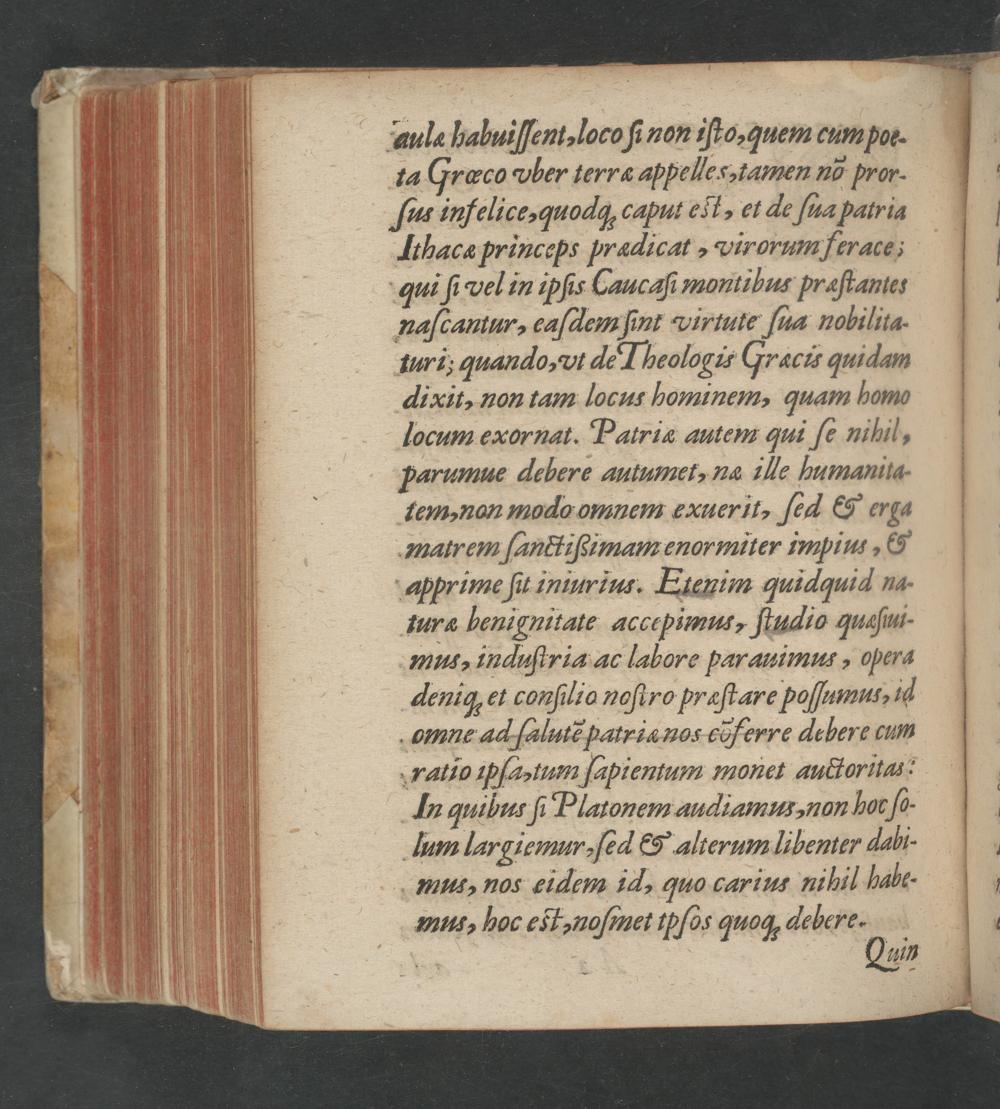 aulæ habuiſſent, loco ſi non iſto, quem cum poe-
ta Grœco vber terræ appelles, tamen nō pror-
ſus infelice, quodq; caput eſt, et de ſua patria
Ithacæ princeps prædicat, virorum ferace;
qui ſi vel in ipſis Caucaſi montibus præſtantes
naſcantur, eaſdem ſint virtute ſua nobilita-
turi; quando, vt de Theologis Græcis quidam
dixit, non tam locus hominem, quam homo
locum exornat. Patriæ autem qui ſe nihil,
parumue debere autumet, næ ille humanita-
tem, non modo omnem exuerit, ſed & erga
matrem ſanctißimam enormiter impius, &
apprime ſit iniurius. Etenim quidquid na-
turæ benignitate accepimus, ſtudio quæſiui-
mus, induſtria ac labore parauimus, opera
deniq; et conſilio noſtro præſtare poſſumus, id
omne ad ſalutē patriæ nos cōferre debere cum
ratio ipſa, tum ſapientum monet auctoritas:
In quibus ſi Platonem audiamus, non hoc ſo-
lum largiemur, ſed & alterum libenter dabi-
mus, nos eidem id, quo carius nihil habe-
mus, hoc eſt, noſmet ipſos quoq; debere.
Quin